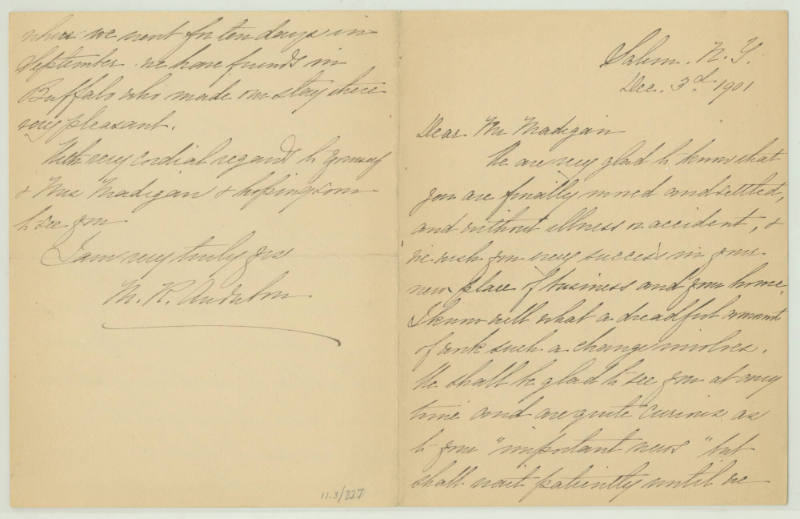 Salem. N. Y.
Dec. 3d. 1901
Dear Mr Madigan
We are very glad to know that
you are finally moved and settled,
and without illness or accident, &
we wish you very success in your
new place of business and your home.
I know well what a dreadful amount
of work such a change involves.
We shall be glad to see you at any
time and are quite curious as
to your "important news" but
shall wait patiently until we
where we went for ten days in
September. we have friends in
Buffalo who made our stay there
very pleasant.
With very cordial regards to yourself
& Mrs Madigan & hoping soon
to see you
I am very truly yrs
M. R. Audubon
11.3/227